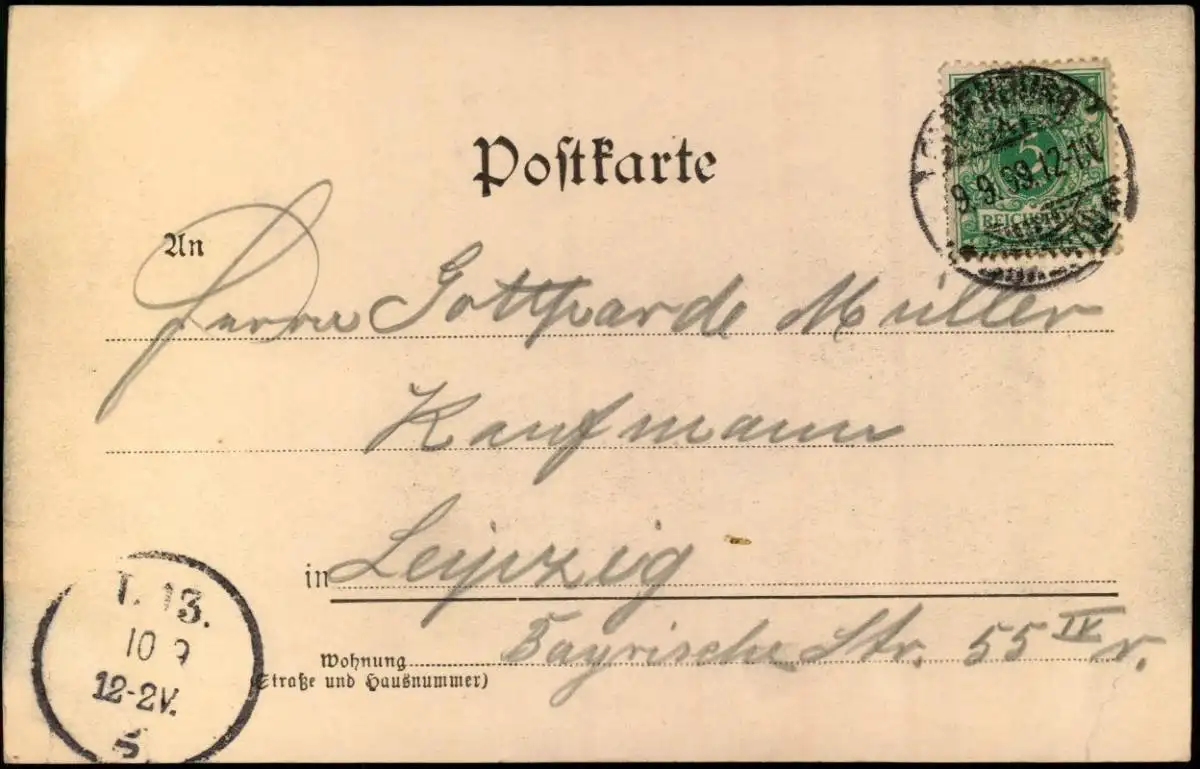 Postkarte
5
9.9.99.12-1V.
REICHSPOST
An
Herrn Gotthardt Müller
Kaufmann
in Leipzig
Wohnung Bayrische Str. 55 IV r.
(Straße und Hausnummer)
13.
10 9
12-2V.
5.